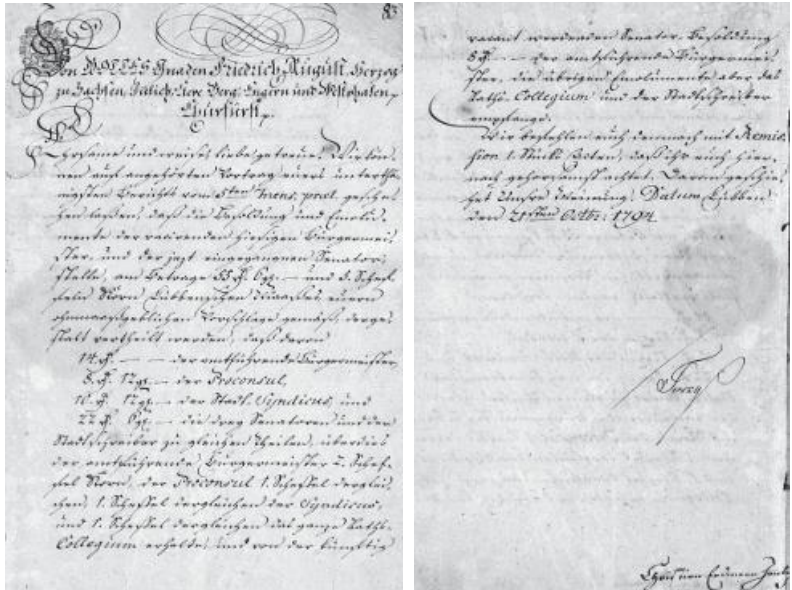 83
Von GOTTES Gnaden Friedrich August Herzog
zu Sachsen, Jülich, Cleve, Berg, Engern und Westphalen,
Churfürst,
Ehrsame und weise, liebe getreue. Wir kön-
nen auf angehörten Vortrag euers unterthä-
nigsten Berichts vom 5ten praes. gesche-
hen lassen, daß die Besoldung und Emolu-
mente der vacirenden hiesigen Bürgermei-
ster, und der jezt eingegangnen Senator-
stelle, am Betrage 55 f. 6 gr. — und 5. Schef-
feln Korn Lübbenschen Maaßes euern
ohnmaasgeblichen Vorschlage gemäß, derge-
stalt vertheilt werden, daß davon
14. f. — — der amtführende Bürgermeister,
8. f. 12 gr. — der Proconsul,
10. f. 12 gr. — der Stadt Syndicus, und
22 f. 6 gr. — die drey Senatoren und der
Stadtschreiber zu gleichen Theilen, überdies
der amtführende Bürgermeister 2. Schef-
fel Korn, der Proconsul 1. Scheffel derglei-
chen, 1. Scheffel dergleichen der Syndicus,
und 1. Scheffel dergleichen das ganze Raths-
Collegium erhalte, und von der künftig
vacant werdenden Senator-Besoldung
8 f. — — der amtführende Bürgermei-
ster, die übrigen Emolumente aber das
Raths Collegium und der Stadtschreiber
empfange.
Wir befehlen euch demnach mit Remis-
sion 1. Stücks Acten, daß ihr euch hier-
nach gehorsamst achtet. Daran geschie-
het Unsre Meinung. Datum Lübben
den 21sten Octbr. 1794
Christian Erdmann